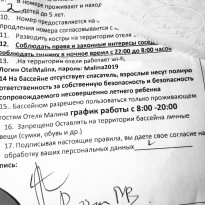 В номере проживают и наход
2 детей до 5 лет.
10. Номер предоставляется на
продления номера согласовывается с
11. Разводить костры на территории отеля
12. Соблюдать права и законные интересы сосед
соблюдать тишину в ночное время с 22:00 до 8:00 часов
13. ,На территории отеля работает wi-fi,
Логин OtelMalina, пароль: Malina2019
14 На бассейне отсутствует спасатель, взрослые несут полную
ответственность за собственную безопасность и безопасность
сопровождаемого несовершенно летнего ребенка
15.. Бассейном разрешено пользоваться только проживающим
гостям Отеля Малина график работы с 8:00 -20:00
16. Запрещено Оставлять на территории бассейна личные
вещи (сумки, обувь и др.)
17. Подписывая настоящие правила, вы даете свое согласие на
обработку ваших персональных данных
пись: